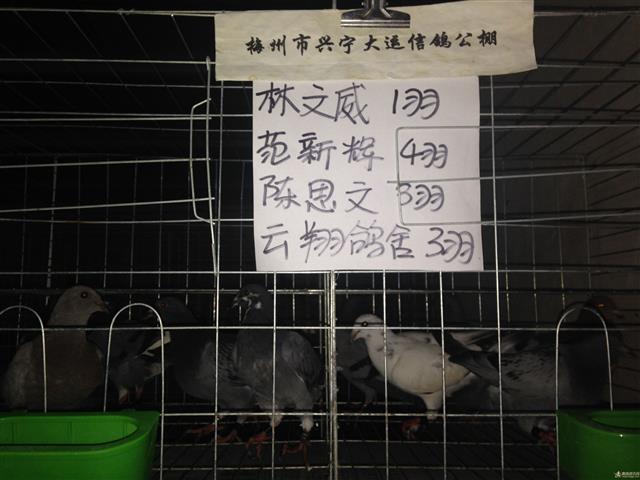 梅州市兴宁大运信鸽公棚
林文威 1羽
范新辉 4羽
陈思文 3羽
云翔鸽舍 3羽